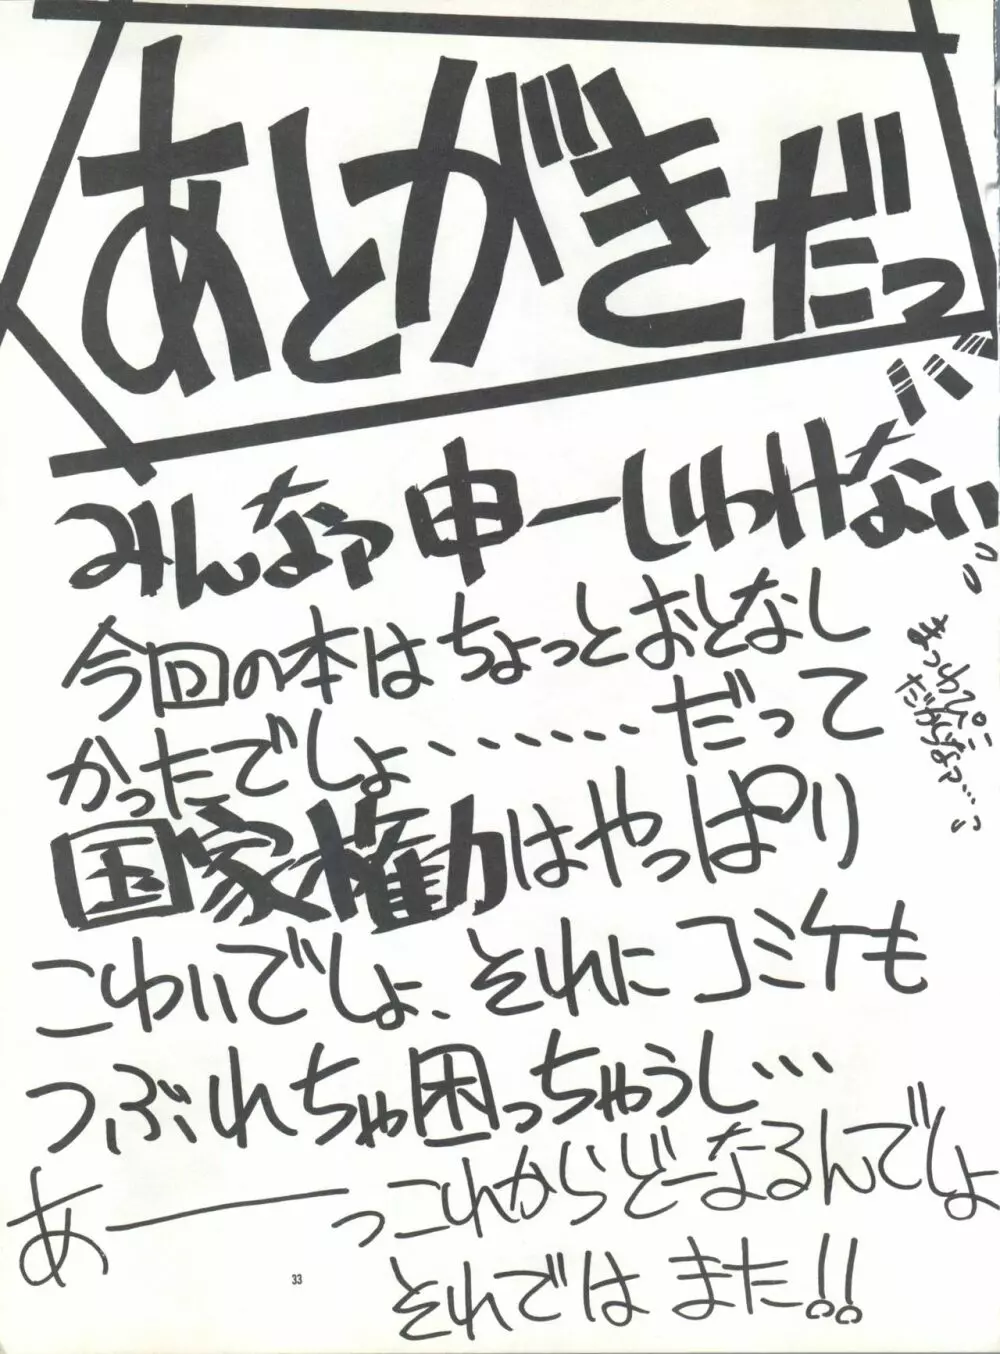 あとがきだっ
みんなァ申ーしわけないっ
今回の本はちょっとおとなし
かったでしょ・・・・・・・だって
国家権力はやっぱり
こわいでしょ、それにコミケも
つぶれちゃ困っちゃうし…
あ──っこれからどーなるんでしょ
それではまた!!
33